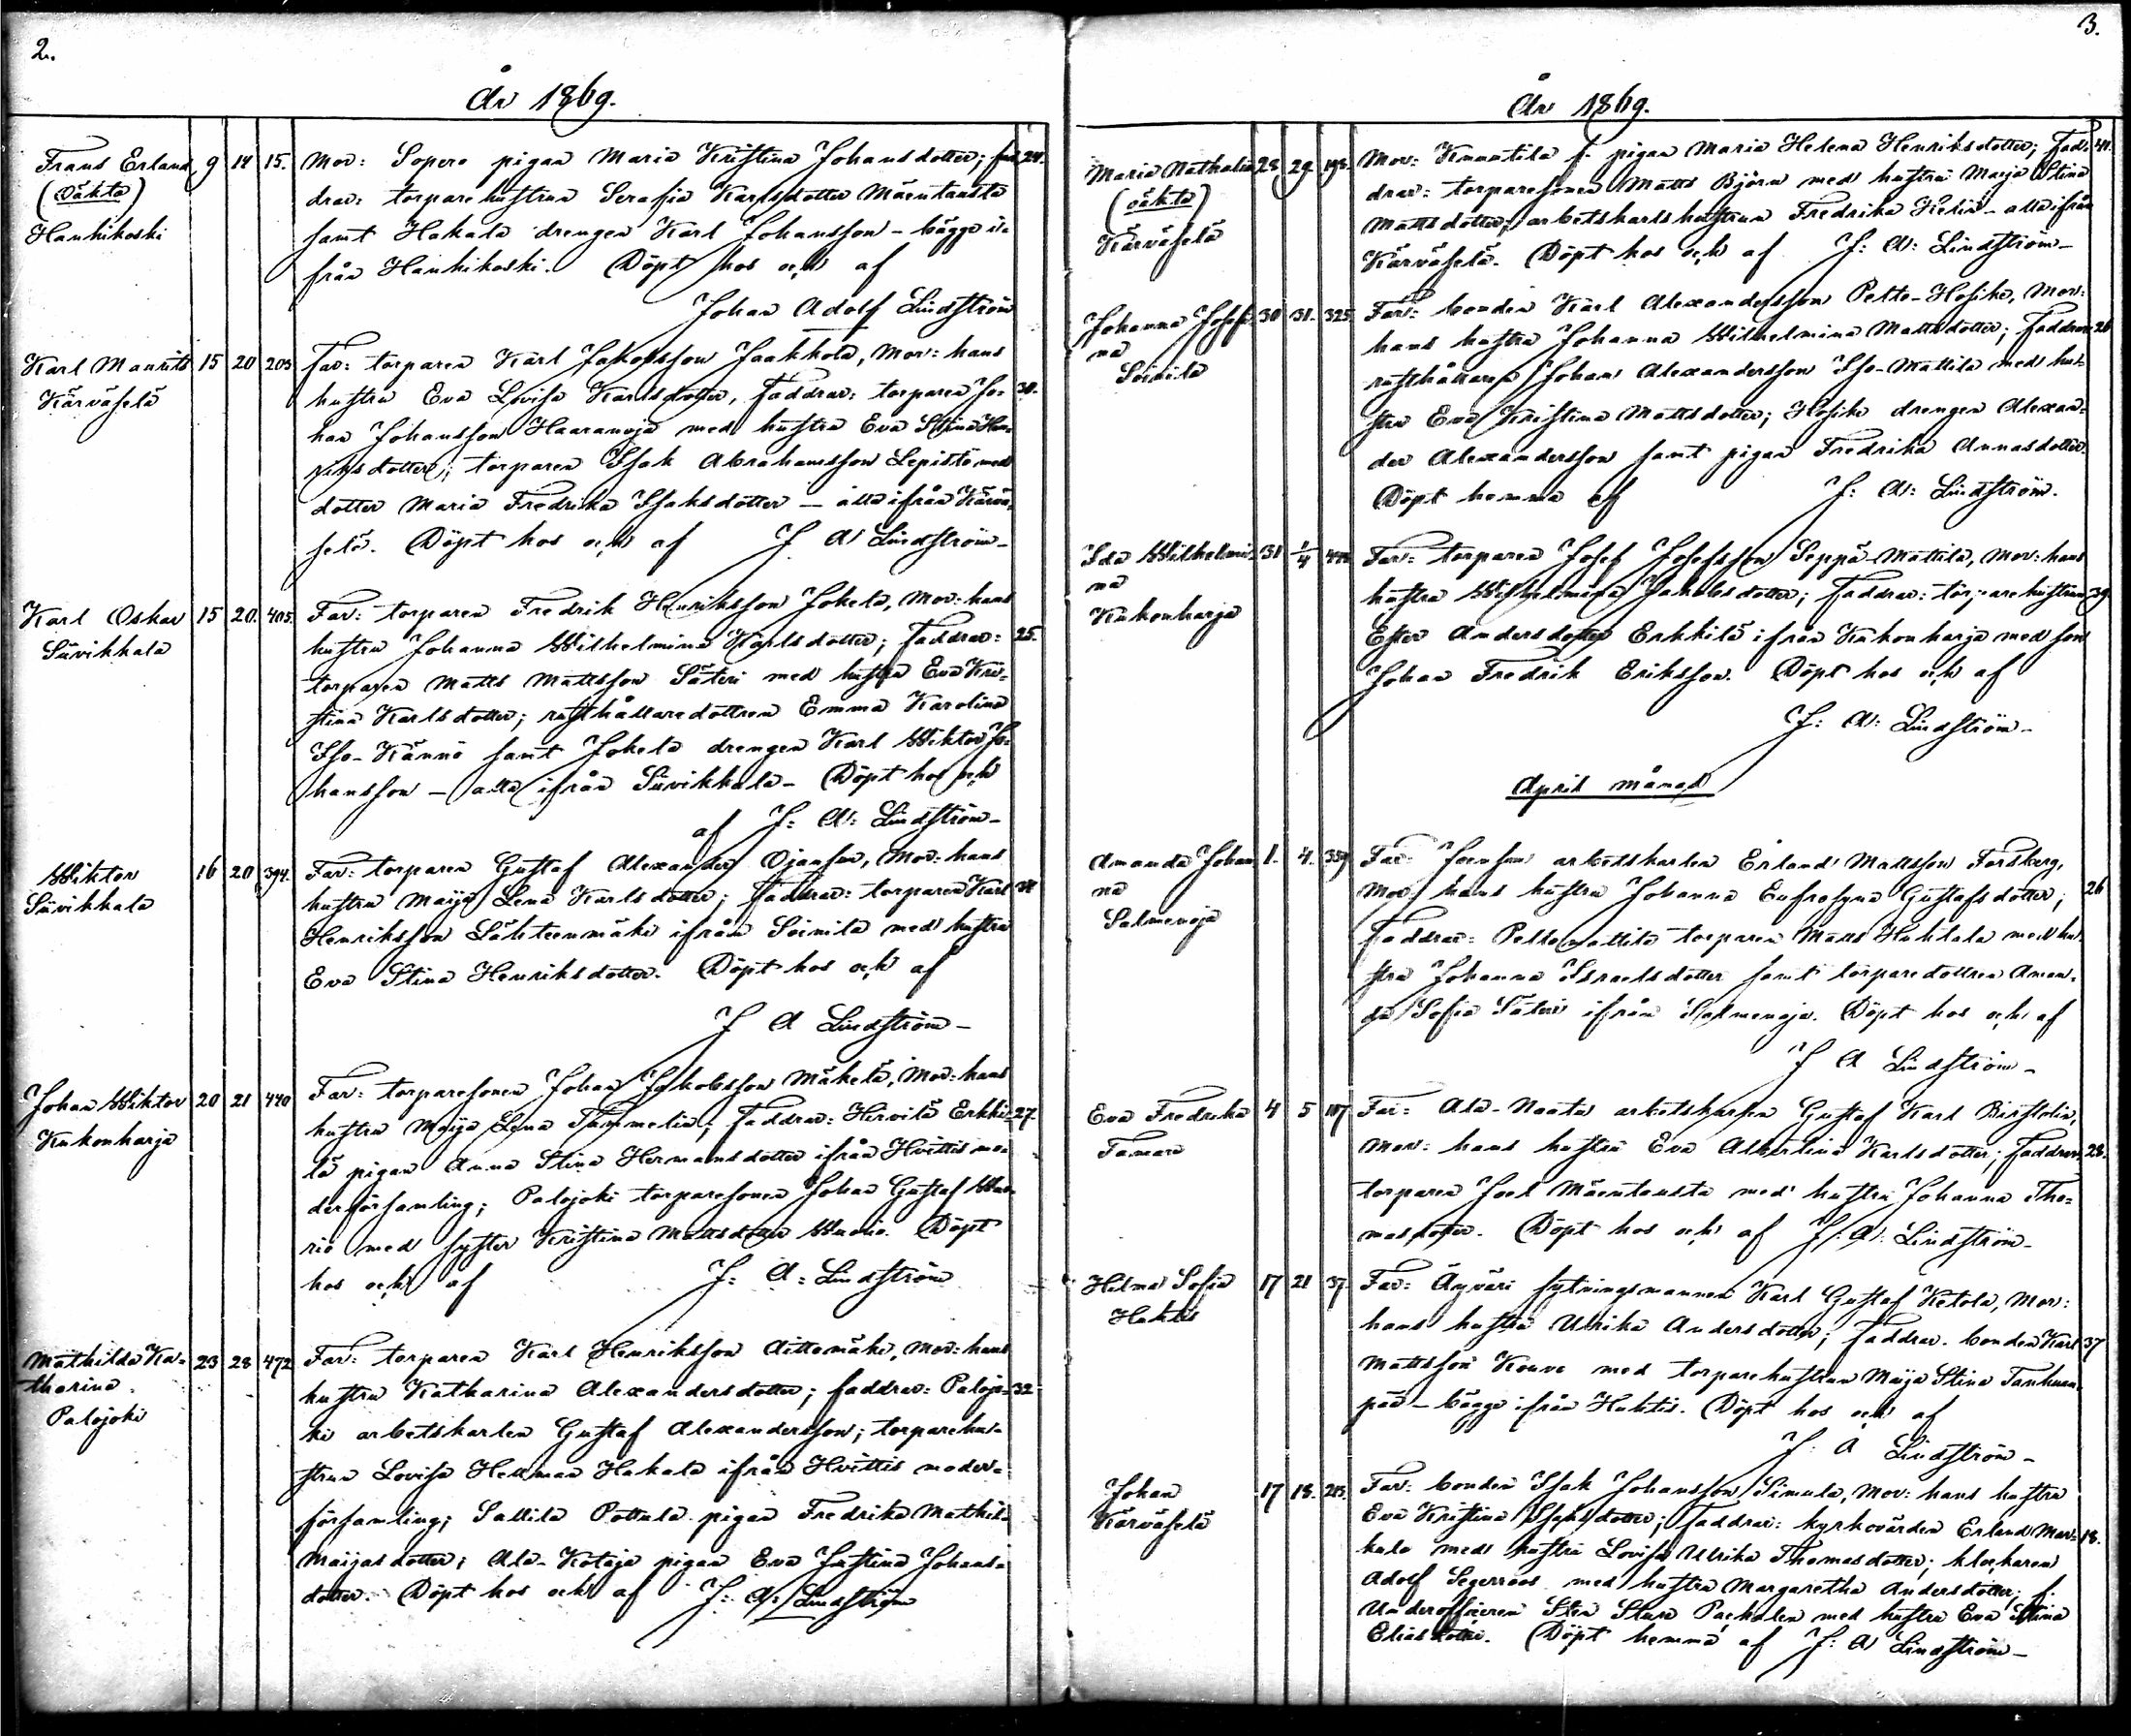 2.
År 1869.
Frans Erland 9 14 15. Mor: Sopero pigan Maria Kristina Johansdotter; fad= 24.
(Oäkta) drar: torparehustrun Serafia Karlsdotter Mäentausta
Hanhikoski samt Hakala drengen Karl Johansson – bägge i=
från Hanhikoski. Döpt hos och af
Johan Adolf Lindström
Karl Mauritz 15 20 205 Far: torparen Karl Jakobsson Jaakkola, Mor: hans
Kärväselä hustru Eva Lovisa Karlsdotter, faddrar: torparen Jo= 30.
han Johansson Haaranoja med hustru Eva Stina Hen=
riksdotter; torparen Isak Abrahamsson Lepistö med
dotter Maria Fredrika Isaksdotter – alla ifrån Kärvä=
selä. Döpt hos och af J A Lindström –
Karl Oskar 15 20. 405. Far: torparen Fredrik Henriksson Jokela, Mor: hans
Suvikkala hustru Johanna Wilhelmina Karlsdotter; Faddrar: 25.
torparen Matts Mattsson Säteri med hustru Eva Kri=
stina Karlsdotter; rusthållaredottren Emma Karolina
Iso-Kännö samt Jokela drengen Karl Wiktor Jo=
hansson – alla ifrån Suvikkala – Döpt hos och
af J: A: Lindström –
Wiktor 16 20 394. Far: torparen Gustaf Alexander Ojansuu, Mor: hans
Suvikkala hustru Maija Lena Karlsdotter; Faddrar: torparen Karl 38
Henriksson Lähteenmäki ifrån Soinila med hustru
Eva Stina Henriksdotter. Döpt hos och af
J A Lindström –
Johan Wiktor 20 21 440 Far: torparesonen Johan Jakobsson Mäkelä, Mor: hans
Kukonharja hustru Maija Lena Tammelin; Faddrar: Hirvilä Erkki= 27.
lä pigan Anna Stina Hermansdotter ifrån Hvittis mo=
derförsamling; Palojoki torparesonen Johan Gustaf Wuo=
rio med syster Kristina Mattsdotter Wuorio. Döpt
hos och af J: A: Lindström
Mathilda Ka= 23 28 472 Far: torparen Karl Henriksson Aittomäki, Mor: hans
tharina hustru Katharina Alexandersdotter; faddrar: Palojo= 32
Palojoki ki arbetskarlen Gustaf Alexandersson; torparehu=
strun Lovisa Hellman Hakala ifrån Hvittis moder=
församling; Sallila Pottula pigan Fredrika Mathil=
Maijasdotter; Ala-Kotaja pigan Eva Justina Johans=
dotter. Döpt hos och af J: A: Lindström
3.
År 1869.
Maria Nathalia 28 29 198. Mor: Knuutila f. pigan Maria Helena Henriksdotter; Fad= 41.
(oäkta) drar: torparesonen Matts Björn med hustru Maija Stina
Kärväselä Mattsdotter; arbetskarlshustrun Fredrika Helin – alla ifrån
Kärväselä. Döpt hos och af J: A: Lindström –
Johanna Josefi 30 31. 325. Far: bonden Karl Alexandersson Pelto-Hosike, Mor:
na hans hustru Johanna Wilhelmina Mattsdotter; Faddrar: 28
Soinila rusthållaren Johan Alexandersson Iso-Mattila med hu=
stru Eva Kristina Mattsdotter; Hosike drengen Alexan=
der Alexandersson samt pigan Fredrika Annasdotter.
Döpt hemma af J: A: Lindström.
Ida Wilhelmi= 31 1/4 Far: torparen Josef Josefsson Seppä-Mattila, Mor: hans
na hustru Wilhelmina Jakobsdotter; Faddrar: torparehustrun 39.
Kukonharja Ester Andersdotter Erkkilä ifrån Kukonharja med son
Johan Fredrik Eriksson. Döpt hos och af
J: A: Lindström –
April månad
Amanda Johan 1. 4. 359 Far: arbetskarlen Erland Mattsson Forsberg,
na Mor: hans hustru Johanna Eufrosyna Gustafsdotter; 26
Salmenoja Faddrar: Peltomattila torparen Matts Huhtala med hu=
stru Johanna Israelsdotter samt torparedottren Aman=
da Sofia Säteri ifrån Salmenoja. Döpt hos och af
J A Lindström –
Eva Fredrika 4 5 107 Far: Ala-Naata arbetskarlen Gustaf Karl
Tamare Mor: hans hustru Eva Albertina Karlsdotter; faddrar: 28.
torparen Joel Mäentausta med hustru Johanna Tho=
masdotter. Döpt hos och af J: A: Lindström –
Hilma Sofia 17 21 37. Far: Äyväri sytningsmannen Karl Gustaf Ketola, Mor:
Huhtis hans hustru Ulrika Andersdotter; faddrar. bonden Karl 37
Mattsson Kouvo med torparehustrun Maija Stina Tanhuan=
pää – bägge ifrån Huhtis. Döpt hos och af
J. A Lindström –
Johan 17 18. 213. Far: bonden Isak Johansson Simula, Mor: hans hustru
Kärväselä Eva Kristina Isaksdotter; Faddrar: kyrkovärden Erland Mar= 18.
kula med hustru Lovisa Ulrika Thomasdotter; klockaren
Adolf Segerroos med hustru Margaretha Andersdotter; f.
Underofficeren Sten Sture Packalen med hustru Eva Stina
Eliasdotter. Döpt hemma af J: A Lindström –